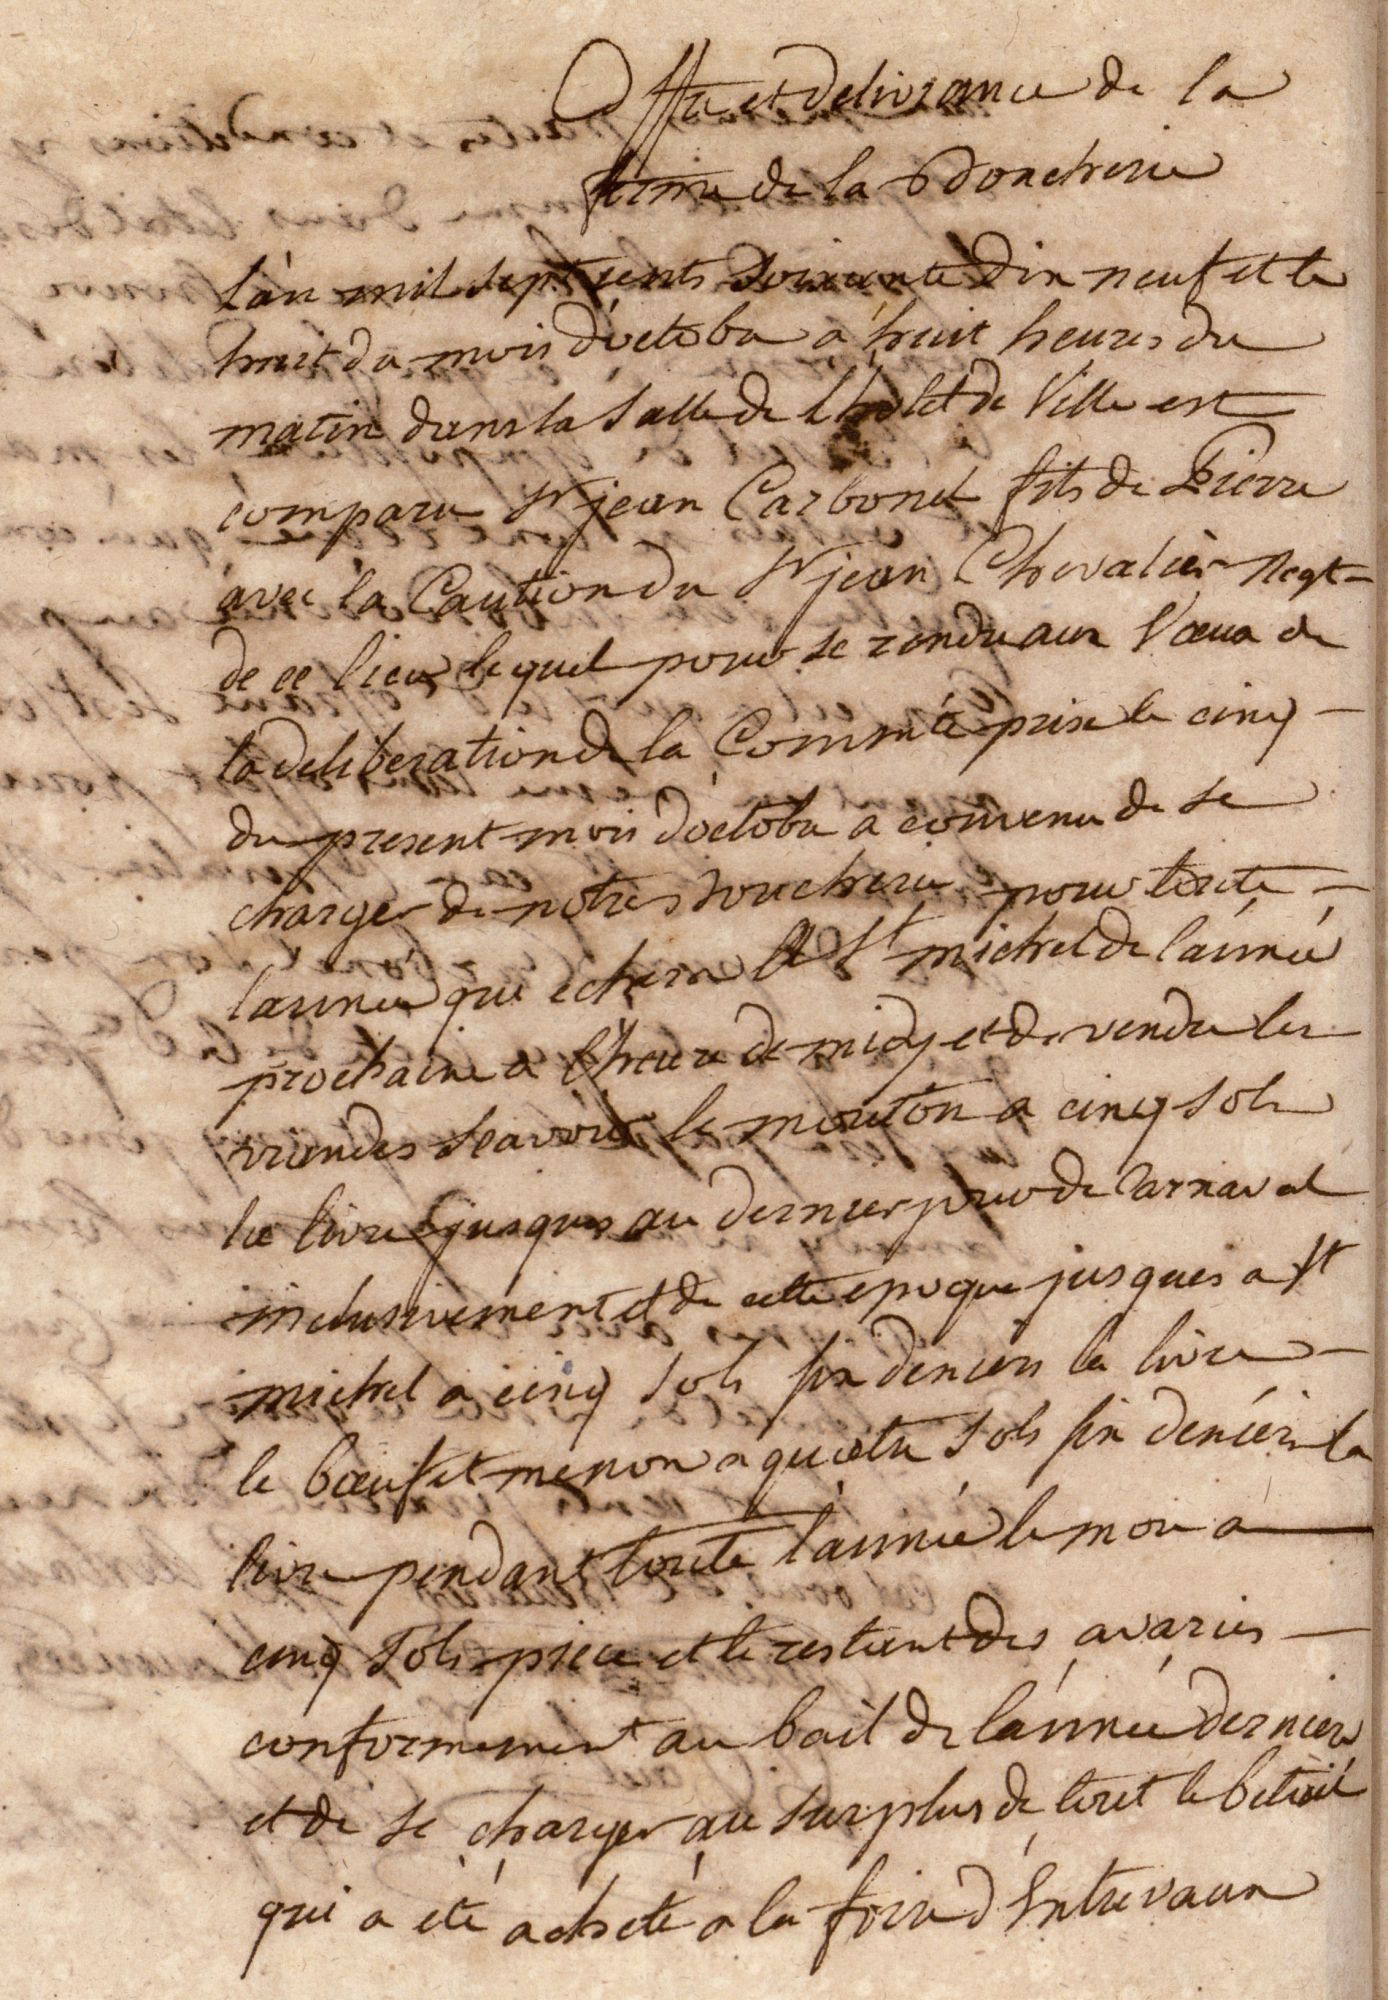 Offre et delivrance de la
ferme de la Boucherie
l'an mil sept cents soixante dix neuf et le
huit du mois d'octobre a huit heures du
matin dans la Salle de l'hotel de Ville est
comparu Sr jean Carbonel fils de Pierre
avec la Caution du Sr jean Chevalier Negt
de ce lieu lequel pour se rendre aux Vœux de
la deliberation de la Commté prise le cinq
du present mois d'octobre a convenu de se
charger de notre boucherie pour toute
l'année qui echera a St michel de l'année
prochaine a l'heure de midy et de vendre les
viandes scavoir le mouton a cinq sols
la livre jusques au dernier jour de Carnaval
inclusivement et de cette epoque jusques a St
michel a cinq Sols six deniers la livre
le bœuf et menon a quatre Sols six deniers la
livre pendant toute l'année le mou a
cinq Sols piece et le restant des avaries
conformement au bail de l'année derniere
et de se charger au surplus de tout le betail
qui a été acheté a la foire d'Entrevaux